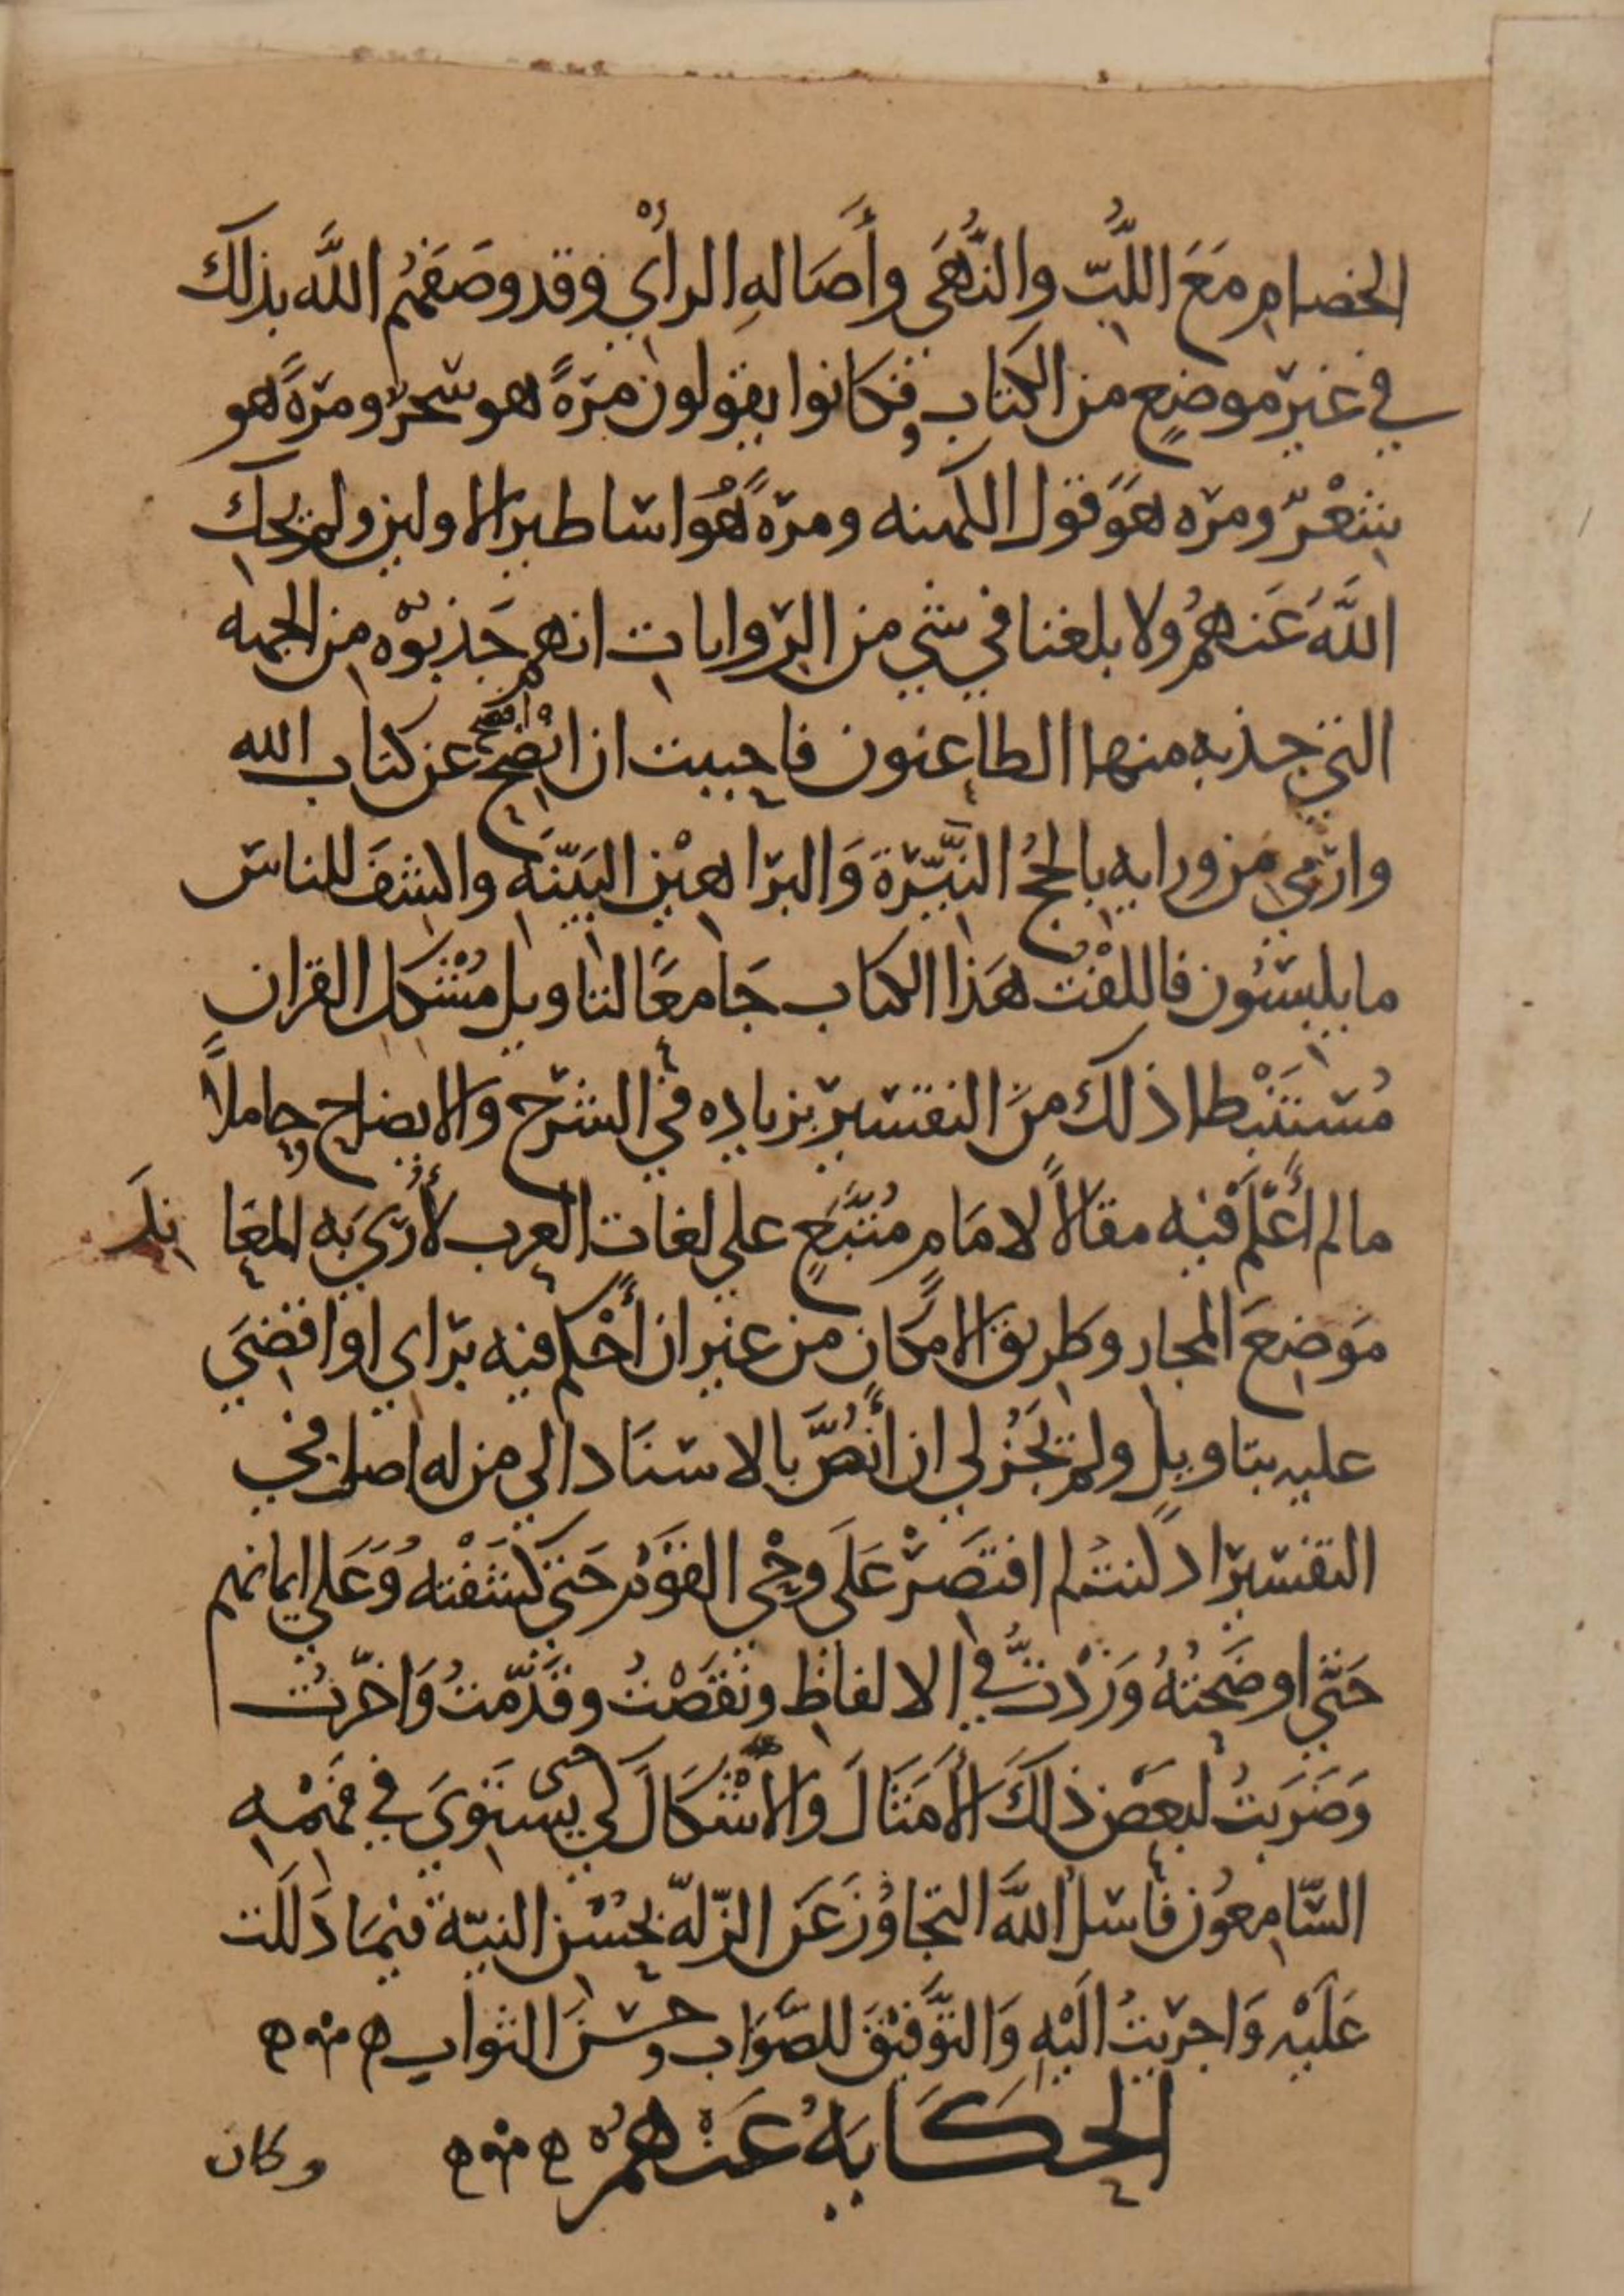 الخصام مَعَ اللُّبّ والنُّهَى وأَصَالهِ الرأْي وقد وصَفَهُم الله بذلك
في غير موضِعٍ من الكتاب فكانوا يقولون مرّةً هو سحرٌ ومرّةً هو
شعْرٌ ومرّه هوَ قول الكهنه ومرّةً هُوَ اساطير الاولين ولم يحكِ
اللَّهُ عَنهمُ ولا بلغنا في شي من الرّوايات انهم جَذبُوْه من الجهه
التي جذبه منها الطاعنون فاحببت ان انْضِح عن كتاب الله
وارْمي مِن ورايه بالحُجُج النَّيّرَةَ وَالبرَاهِيْنِ البَيّنَه واكشفَ للناس
ما يلبسُون فاللفْتُ هَذا الكتاب جَامعًا لتاويل مُشْكِل القران
مُسْتَنْبِطا ذلك منَ التفسير بزياده في الشرْح والايضاح حاملاً
ما لم أَعْلَم فيْه مقالاً لامَامٍ مُتَّبَعٍ علي لغات العرب لأُرِيَ بَه المعَا ندَ
مَوضِعَ المجاز وطريقَ الامكانِ من غير ان أَحْكم فيه براي او اقضِيَ
عليه بتاويل ولم يَجُز لي ان أَنُصَّ بالاسنَاد الي من له اصل في
التفسير اذ كنت لم اقتَصرْ عَلَى وحْي القَوْم حَتي كَشَفْته وَعَلي ايمانهم
حَتّي اوضَحْتُهُ وَزدْتُّ في الالفاظِ ونَقَصْتُ وقَدّمتُ وَاخّرتُ
وَضَرَبتُ لبعَضِ ذلكَ الأَمَثَالَ والأَشْكَالَ لكي حتى يستوِيَ في فهْمِهِ
السّامِعُون فاسلُ اللهَ التجاوُزَ عَن الزّلهّ بحُسْن النيّة فيْمَا دَلَلت
عَلَيْهِ وَاجرَيتُ الَيْهِ وَالتَّوفيْقَ للصَّوَابِ وحُسْنَ الثواب
الحكَايَهُ عَنْهمُ
وكان